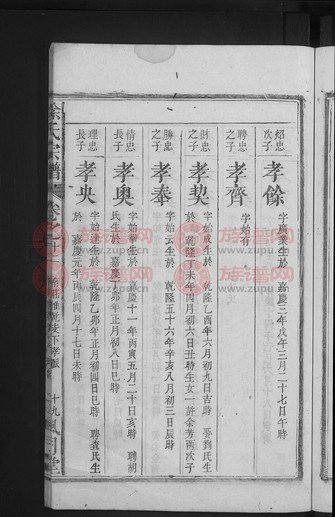 紹忠次子
孝餘
字廣業生於 嘉慶三年戊午三月二十七日午時
聘忠之子
孝齊
字始有
財忠之子
孝契
字始成生於 乾隆乙酉年六月初九日吉時 娶劉氏生
於 乾隆丁未年四月初六日丑時生女一許余芳兩次子
勝忠之子
孝奉
字始云生於 乾隆五十六年辛亥八月初三日辰時
情忠長子
孝奧
字始華生於 嘉慶十一年丙寅五月二十日亥時 聘胡
氏生於 嘉慶丁卯年正月初八日巳時
理忠長子
孝央
字始達生於 乾隆乙卯年正月初四日巳時 聘龔氏生
於 嘉慶元年丙辰四月十七日未時
徐氏宗譜
卷
十九
族譜网
www.zupu.cn